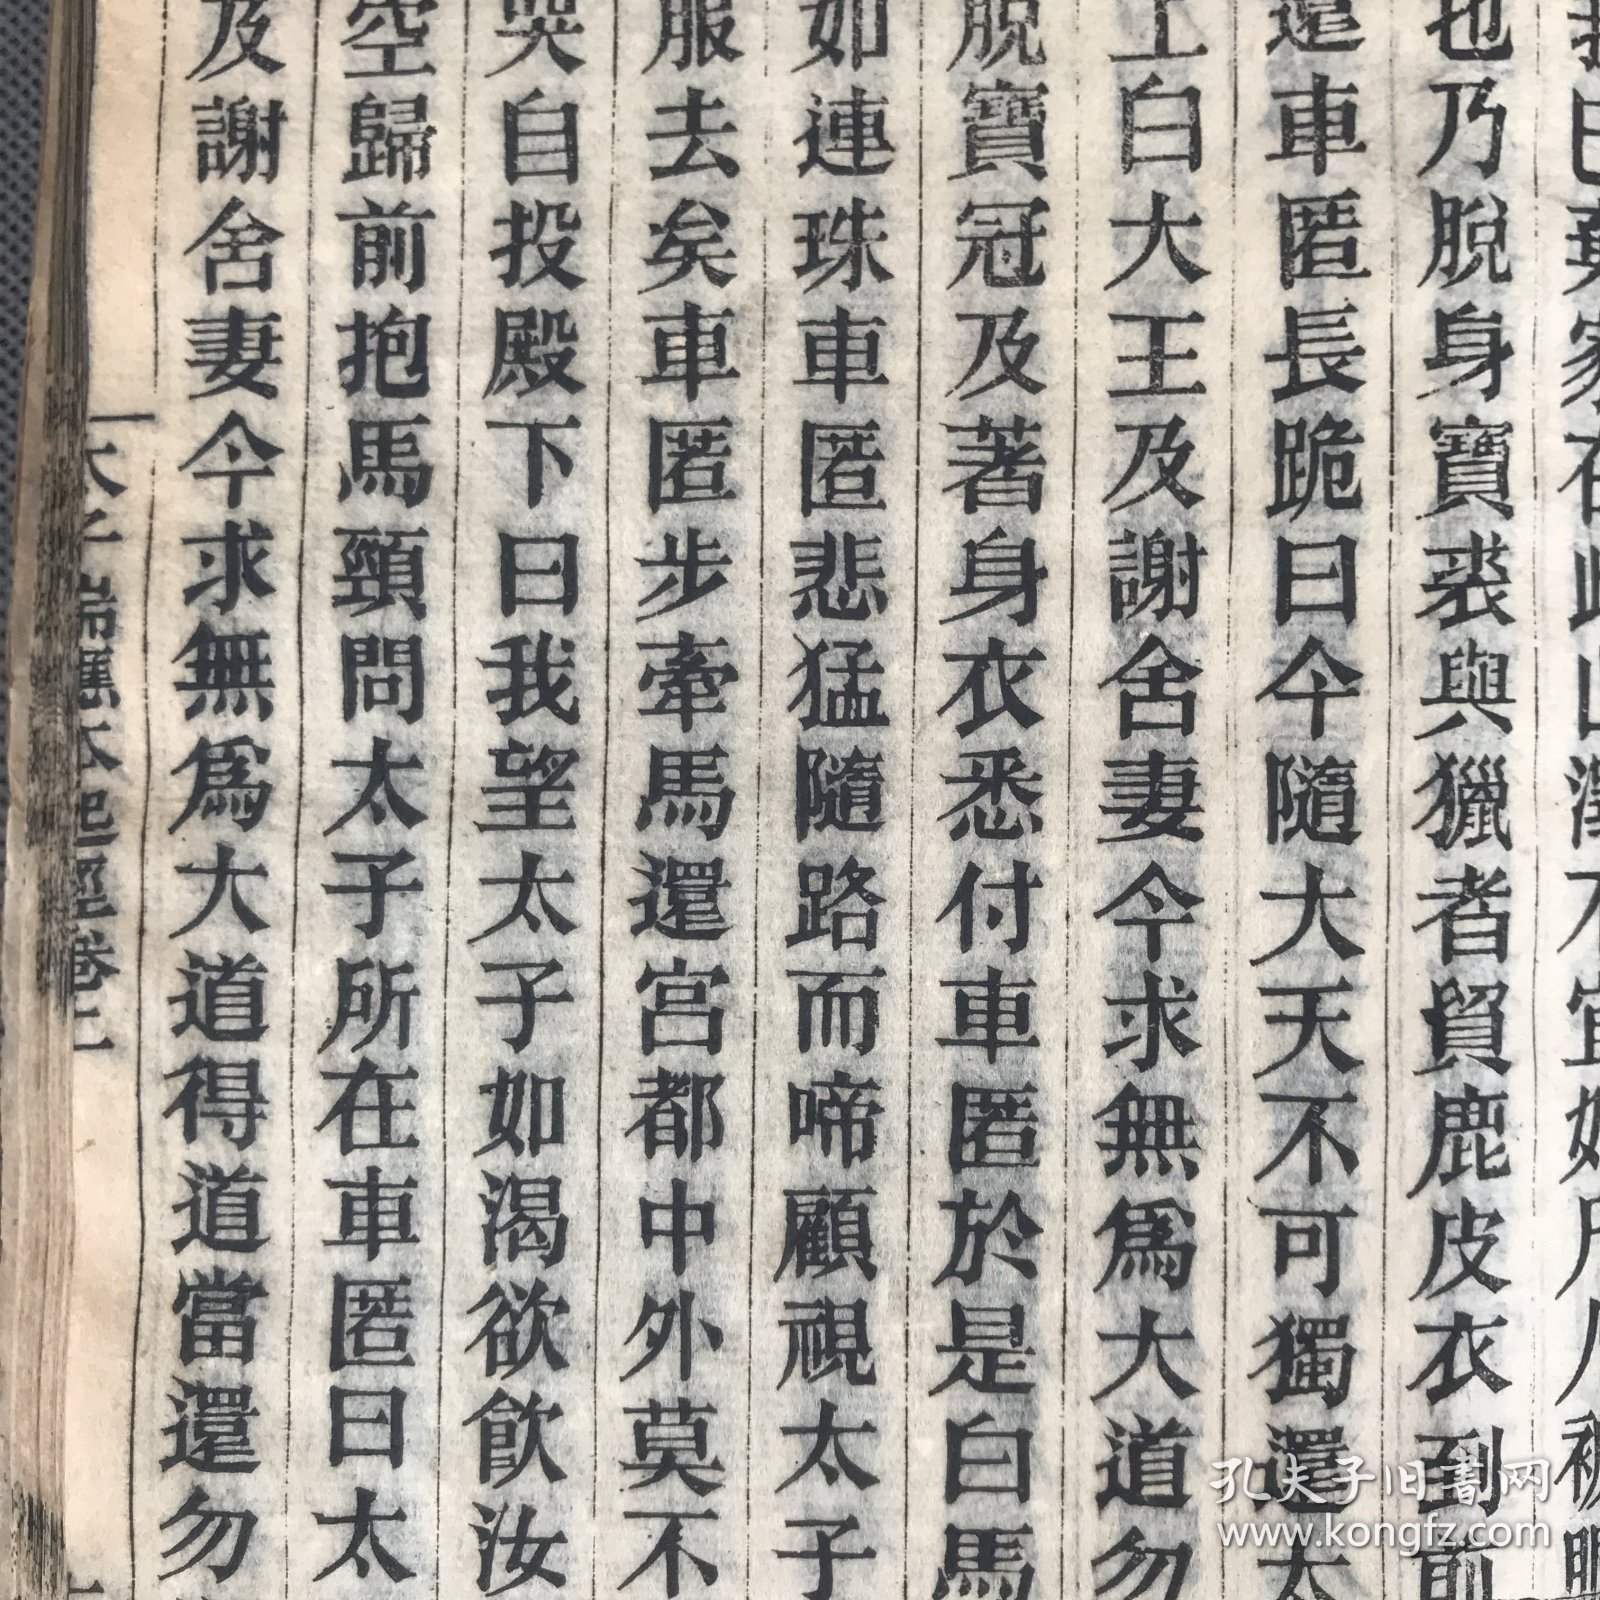 我已棄家在此山澤不宜如凡人被服
也乃脫身寶裘與獵者貿鹿皮衣到前
還車匿長跪曰今隨大天不可獨還太
上白大王及謝舍妻今求無爲大道勿
脫寶冠及著身衣悉付車匿於是白馬
如連珠車匿悲猛隨路而啼顧視太子
服去矣車匿步牽馬還宮都中外莫不
哭自投殿下曰我望太子如渴欲飲汝
空歸前抱馬頸問太子所在車匿曰太
及謝舍妻今求無爲大道得道當還勿
太子瑞應本起經卷上
孔夫子旧書网
www.kongfz.com